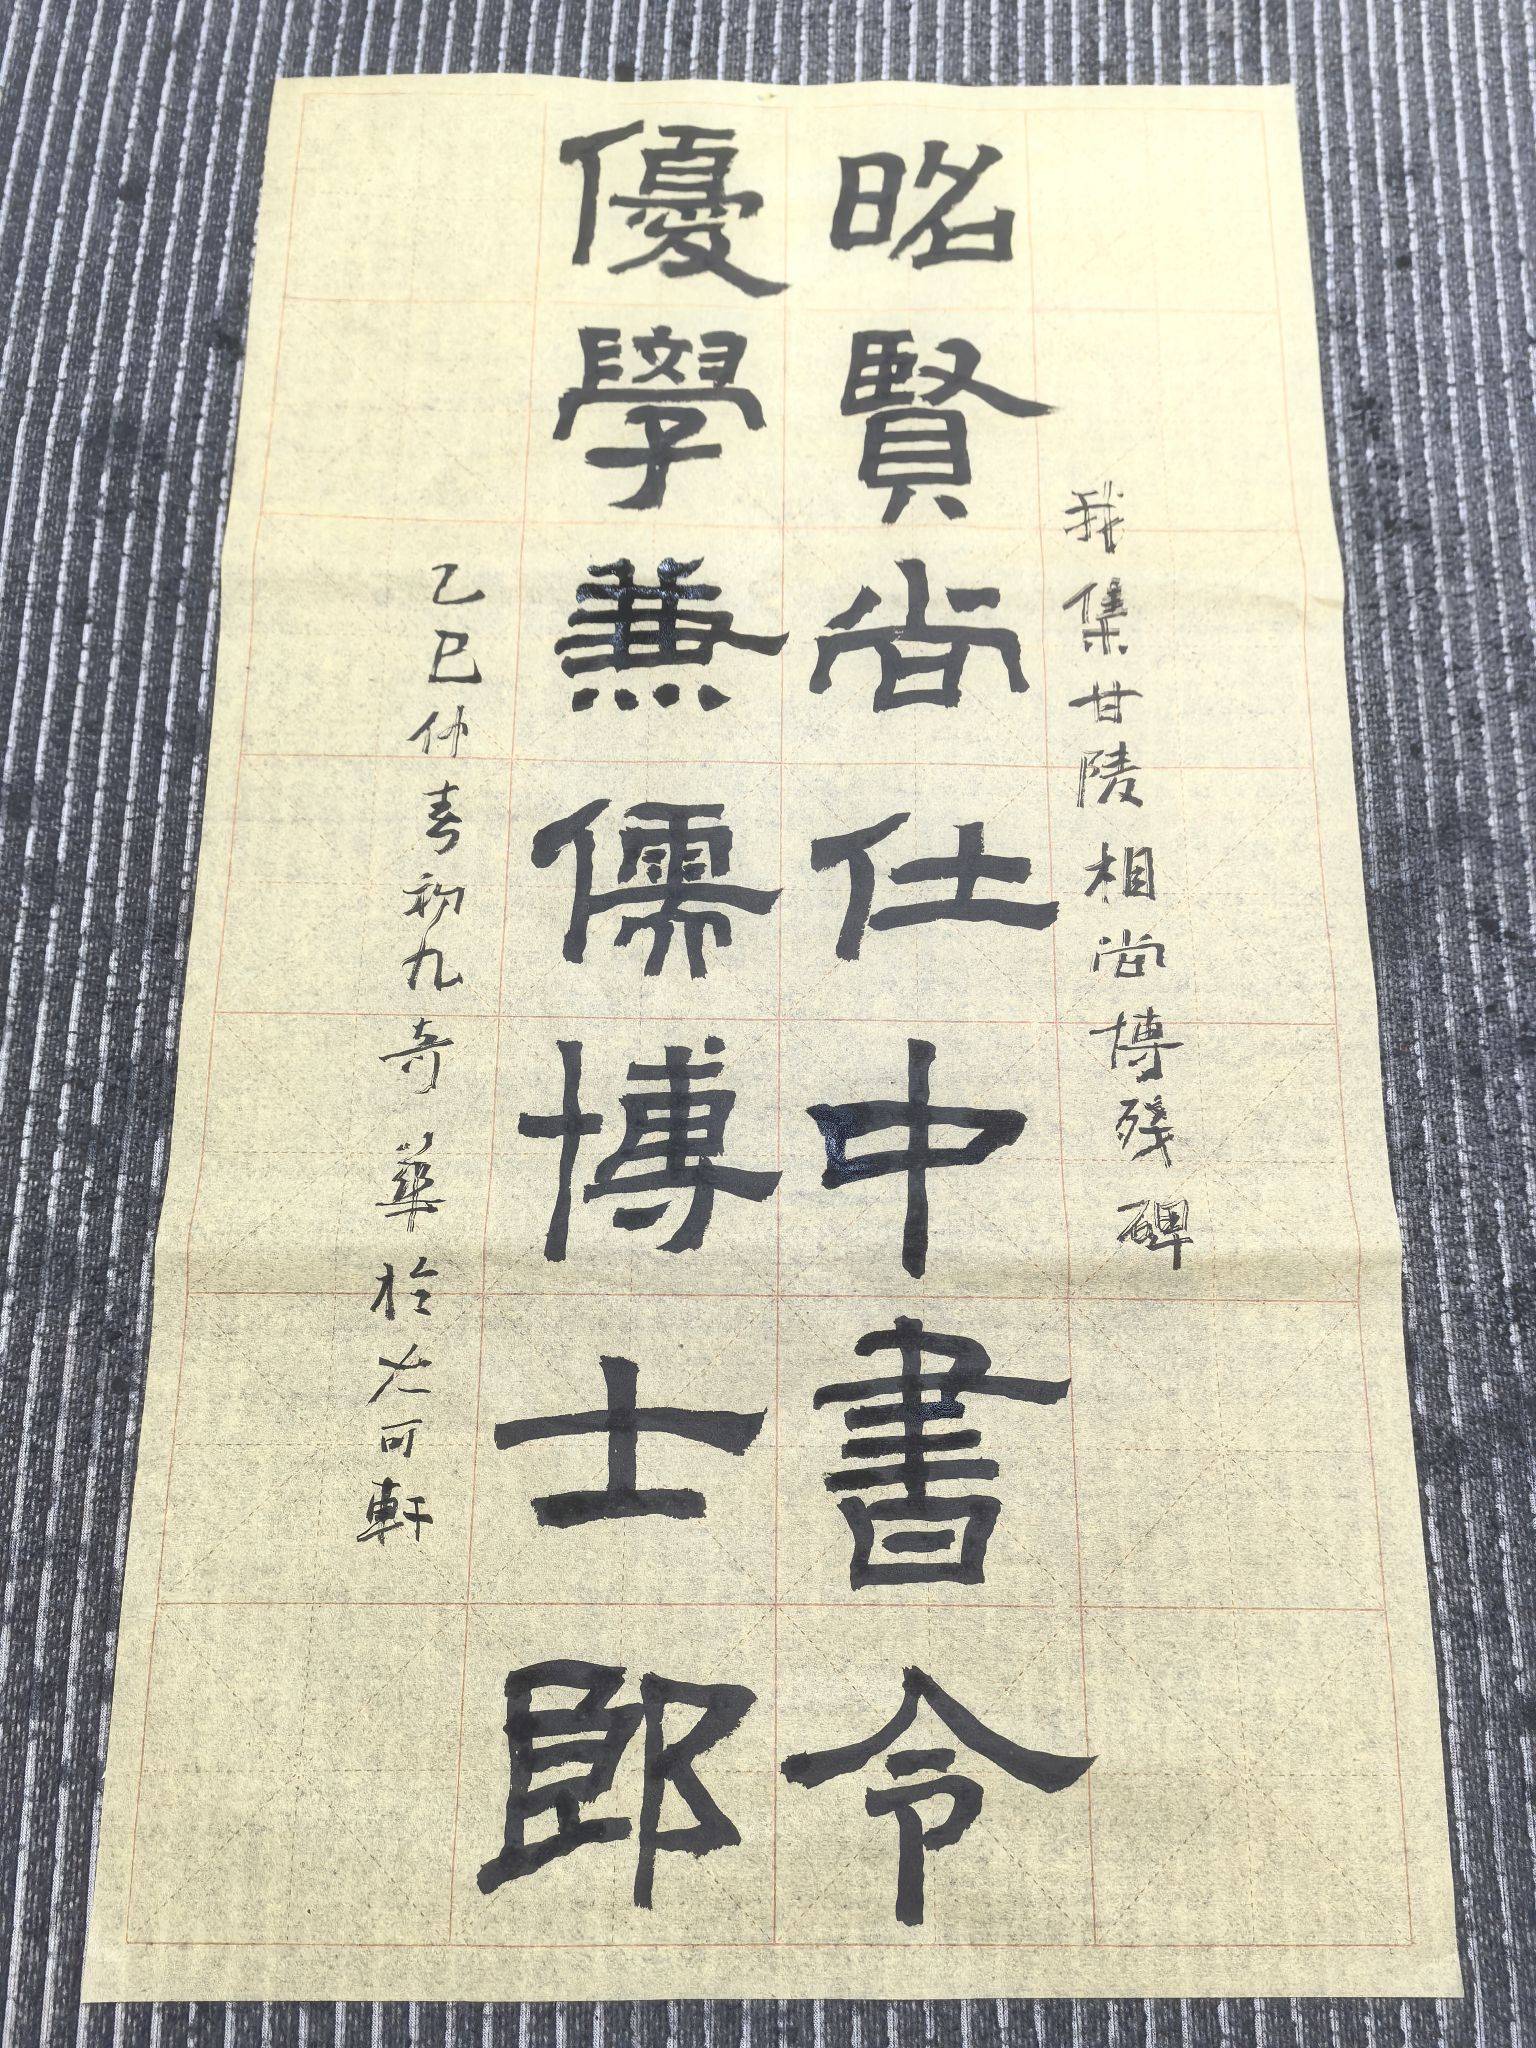 我集甘陵相尚博残碑
昭賢尚仕中書令
優學兼儒博士郎
乙巳仲春初九奇華於尤可軒